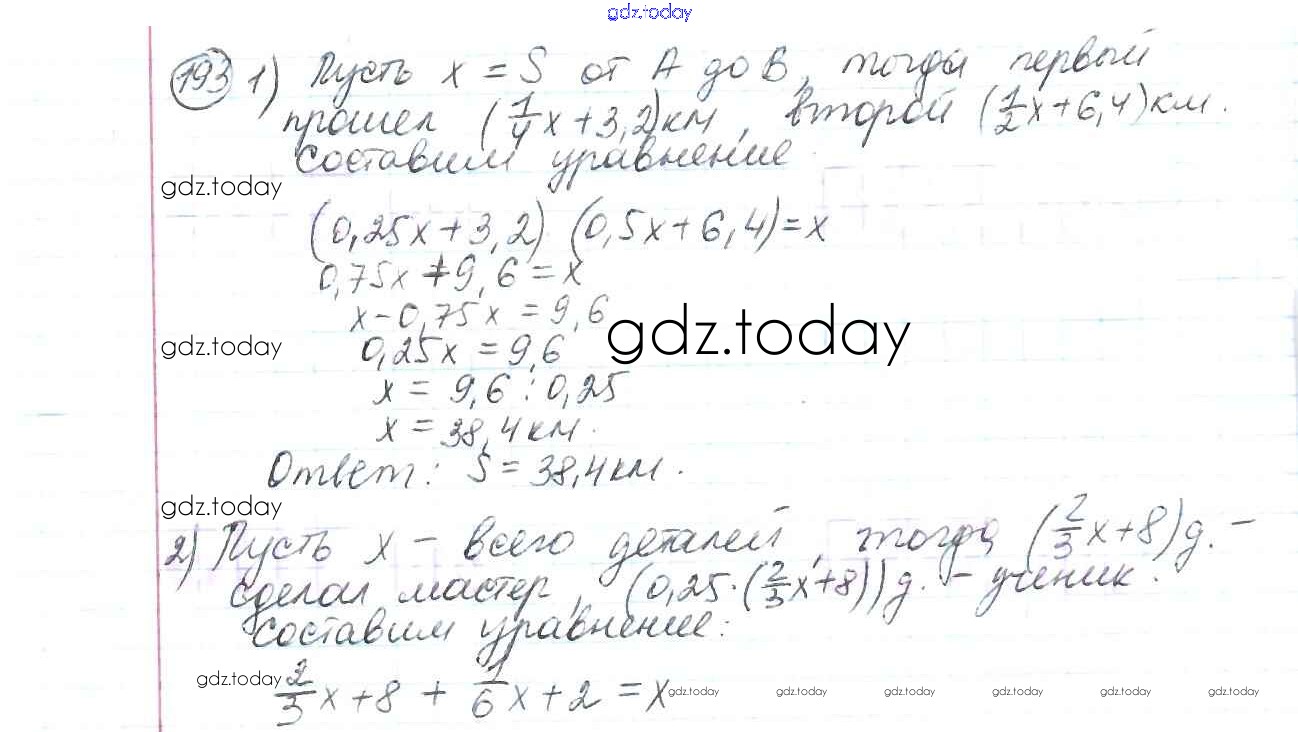 gdz.today
193 1) Пусть x = S от А до В, тогда первый
прошел (1/4x + 3,2)км, второй (1/2x + 6,4)км.
Составим уравнение
gdz.today
(0,25x + 3,2) (0,5x + 6,4) = x
0,75x + 9,6 = x
x - 0,75x = 9,6
gdz.today
gdz.today
0,25x = 9,6
x = 9,6 : 0,25
x = 38,4 км.
Ответ: S = 38,4 км.
gdz.today
2) Пусть x - всего деталей, тогда (2/3x + 8) д. -
сделал мастер, (0,25·(2/3x + 8)) д. - ученик.
Составим уравнение:
gdz.today
2/3x + 8 + 1/6x + 2 = x
gdz.today gdz.today gdz.today gdz.today gdz.today gdz.today